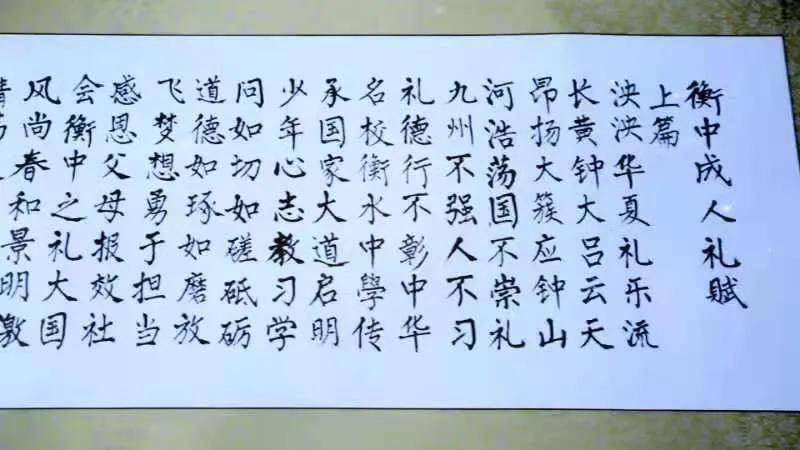 衡中成人礼赋
上篇
泱泱华夏礼乐流
长黄钟大吕云天
昂扬大簇应钟山
河浩荡国不崇礼
九州不强人不习
礼德行不彰中华
名校衡水中學传
承国家大道启明
少年心志教习学
问如切如磋砥砺
道德如琢如磨放
飞梦想勇于担当
感恩父母报效社
会衡中之礼大国
风尚春和景明